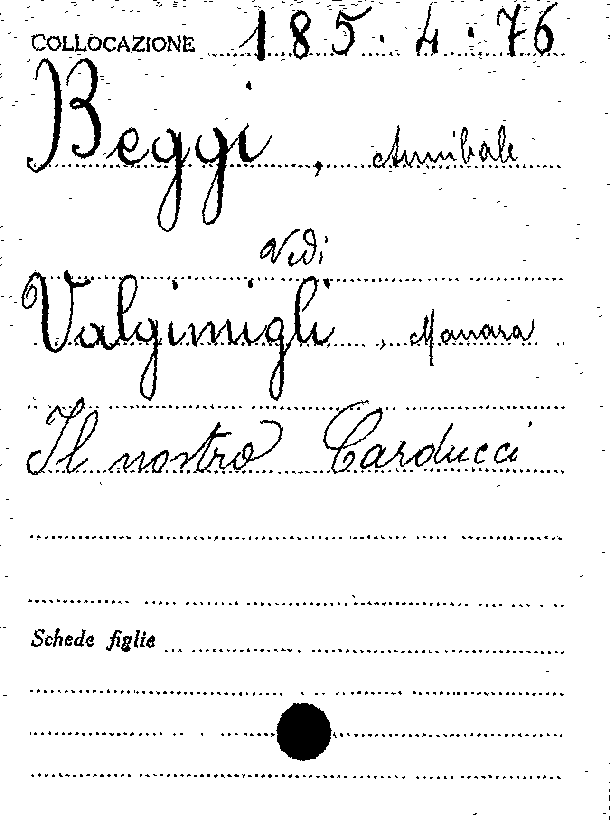 COLLOCAZIONE 185.4.76
Beggi, Annibale
Vedi
Valgimigli, Manara
Il nostro Carducci
Schede figlie